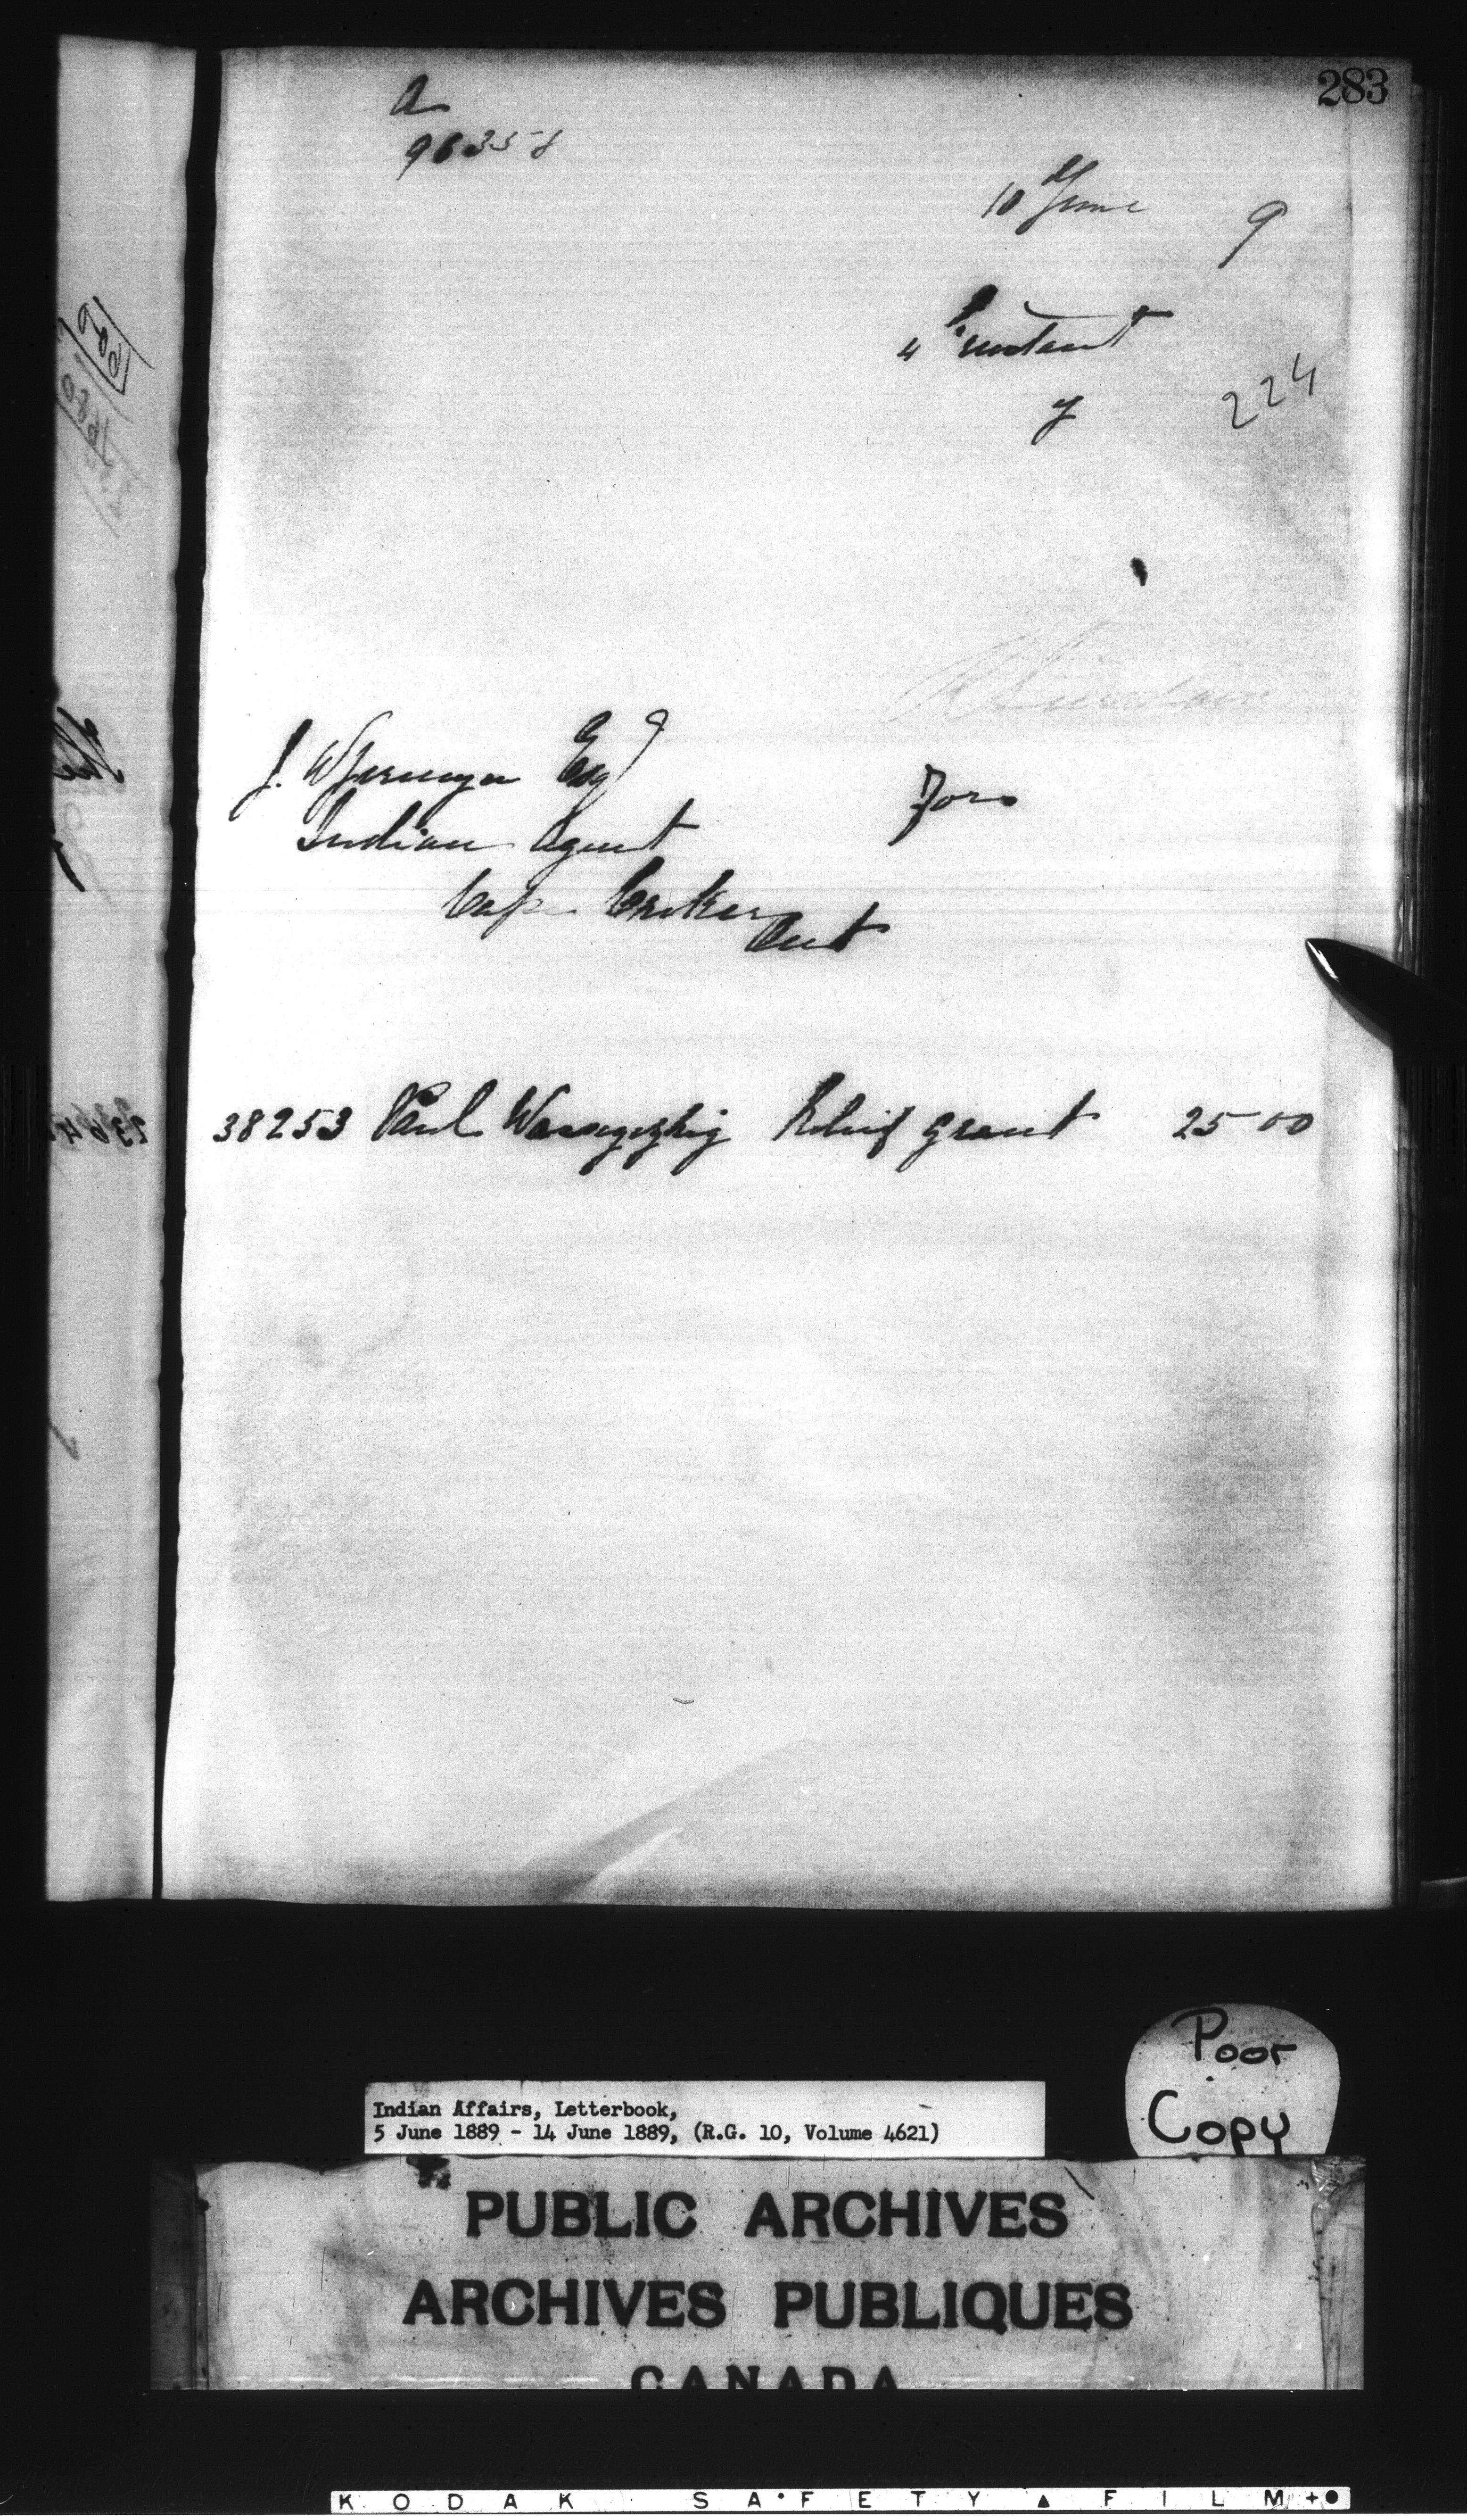 283
a
96358
10 June 9
4th instant
y 224
R Sinclair
J. W Jermyn Esq
Indian Agent
For
Cape Croker
Ont
38253 Paul Wassegezhig Relief grant 25 00
Poor
Copy
Indian Affairs, Letterbook,
5 June 1889 - 14 June 1889, (R.G. 10, Volume 4621)
PUBLIC ARCHIVES
ARCHIVES PUBLIQUES
CANADA
KODAK SAFETY FILM